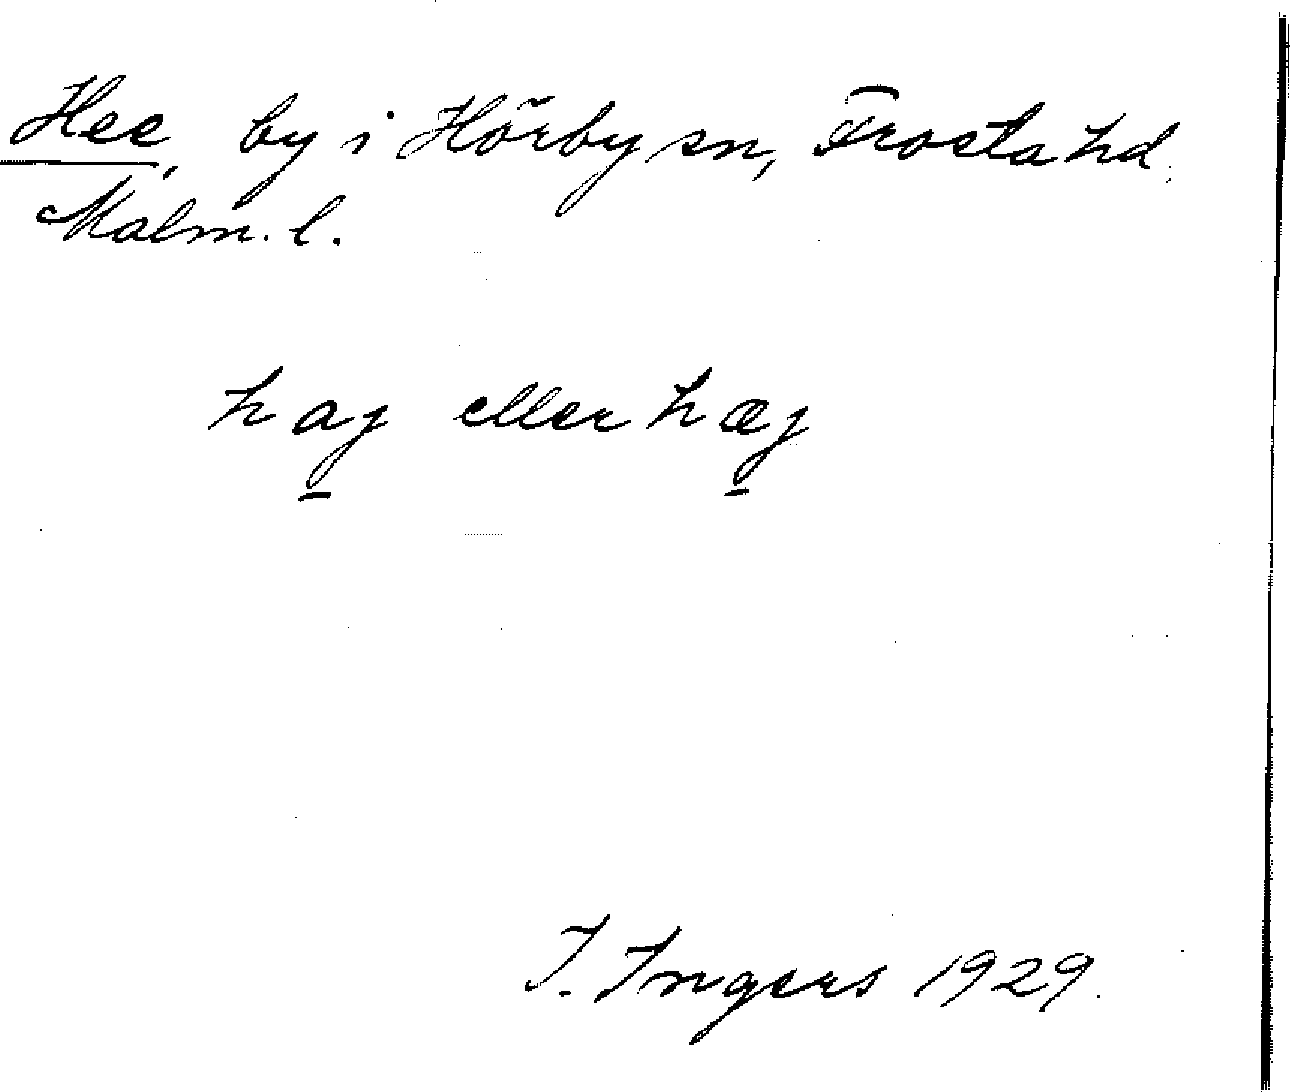 Hee, by i Hörby sn, Frosta hd.
Malm. l.
haj eller hæj
I. Ingers 1929.